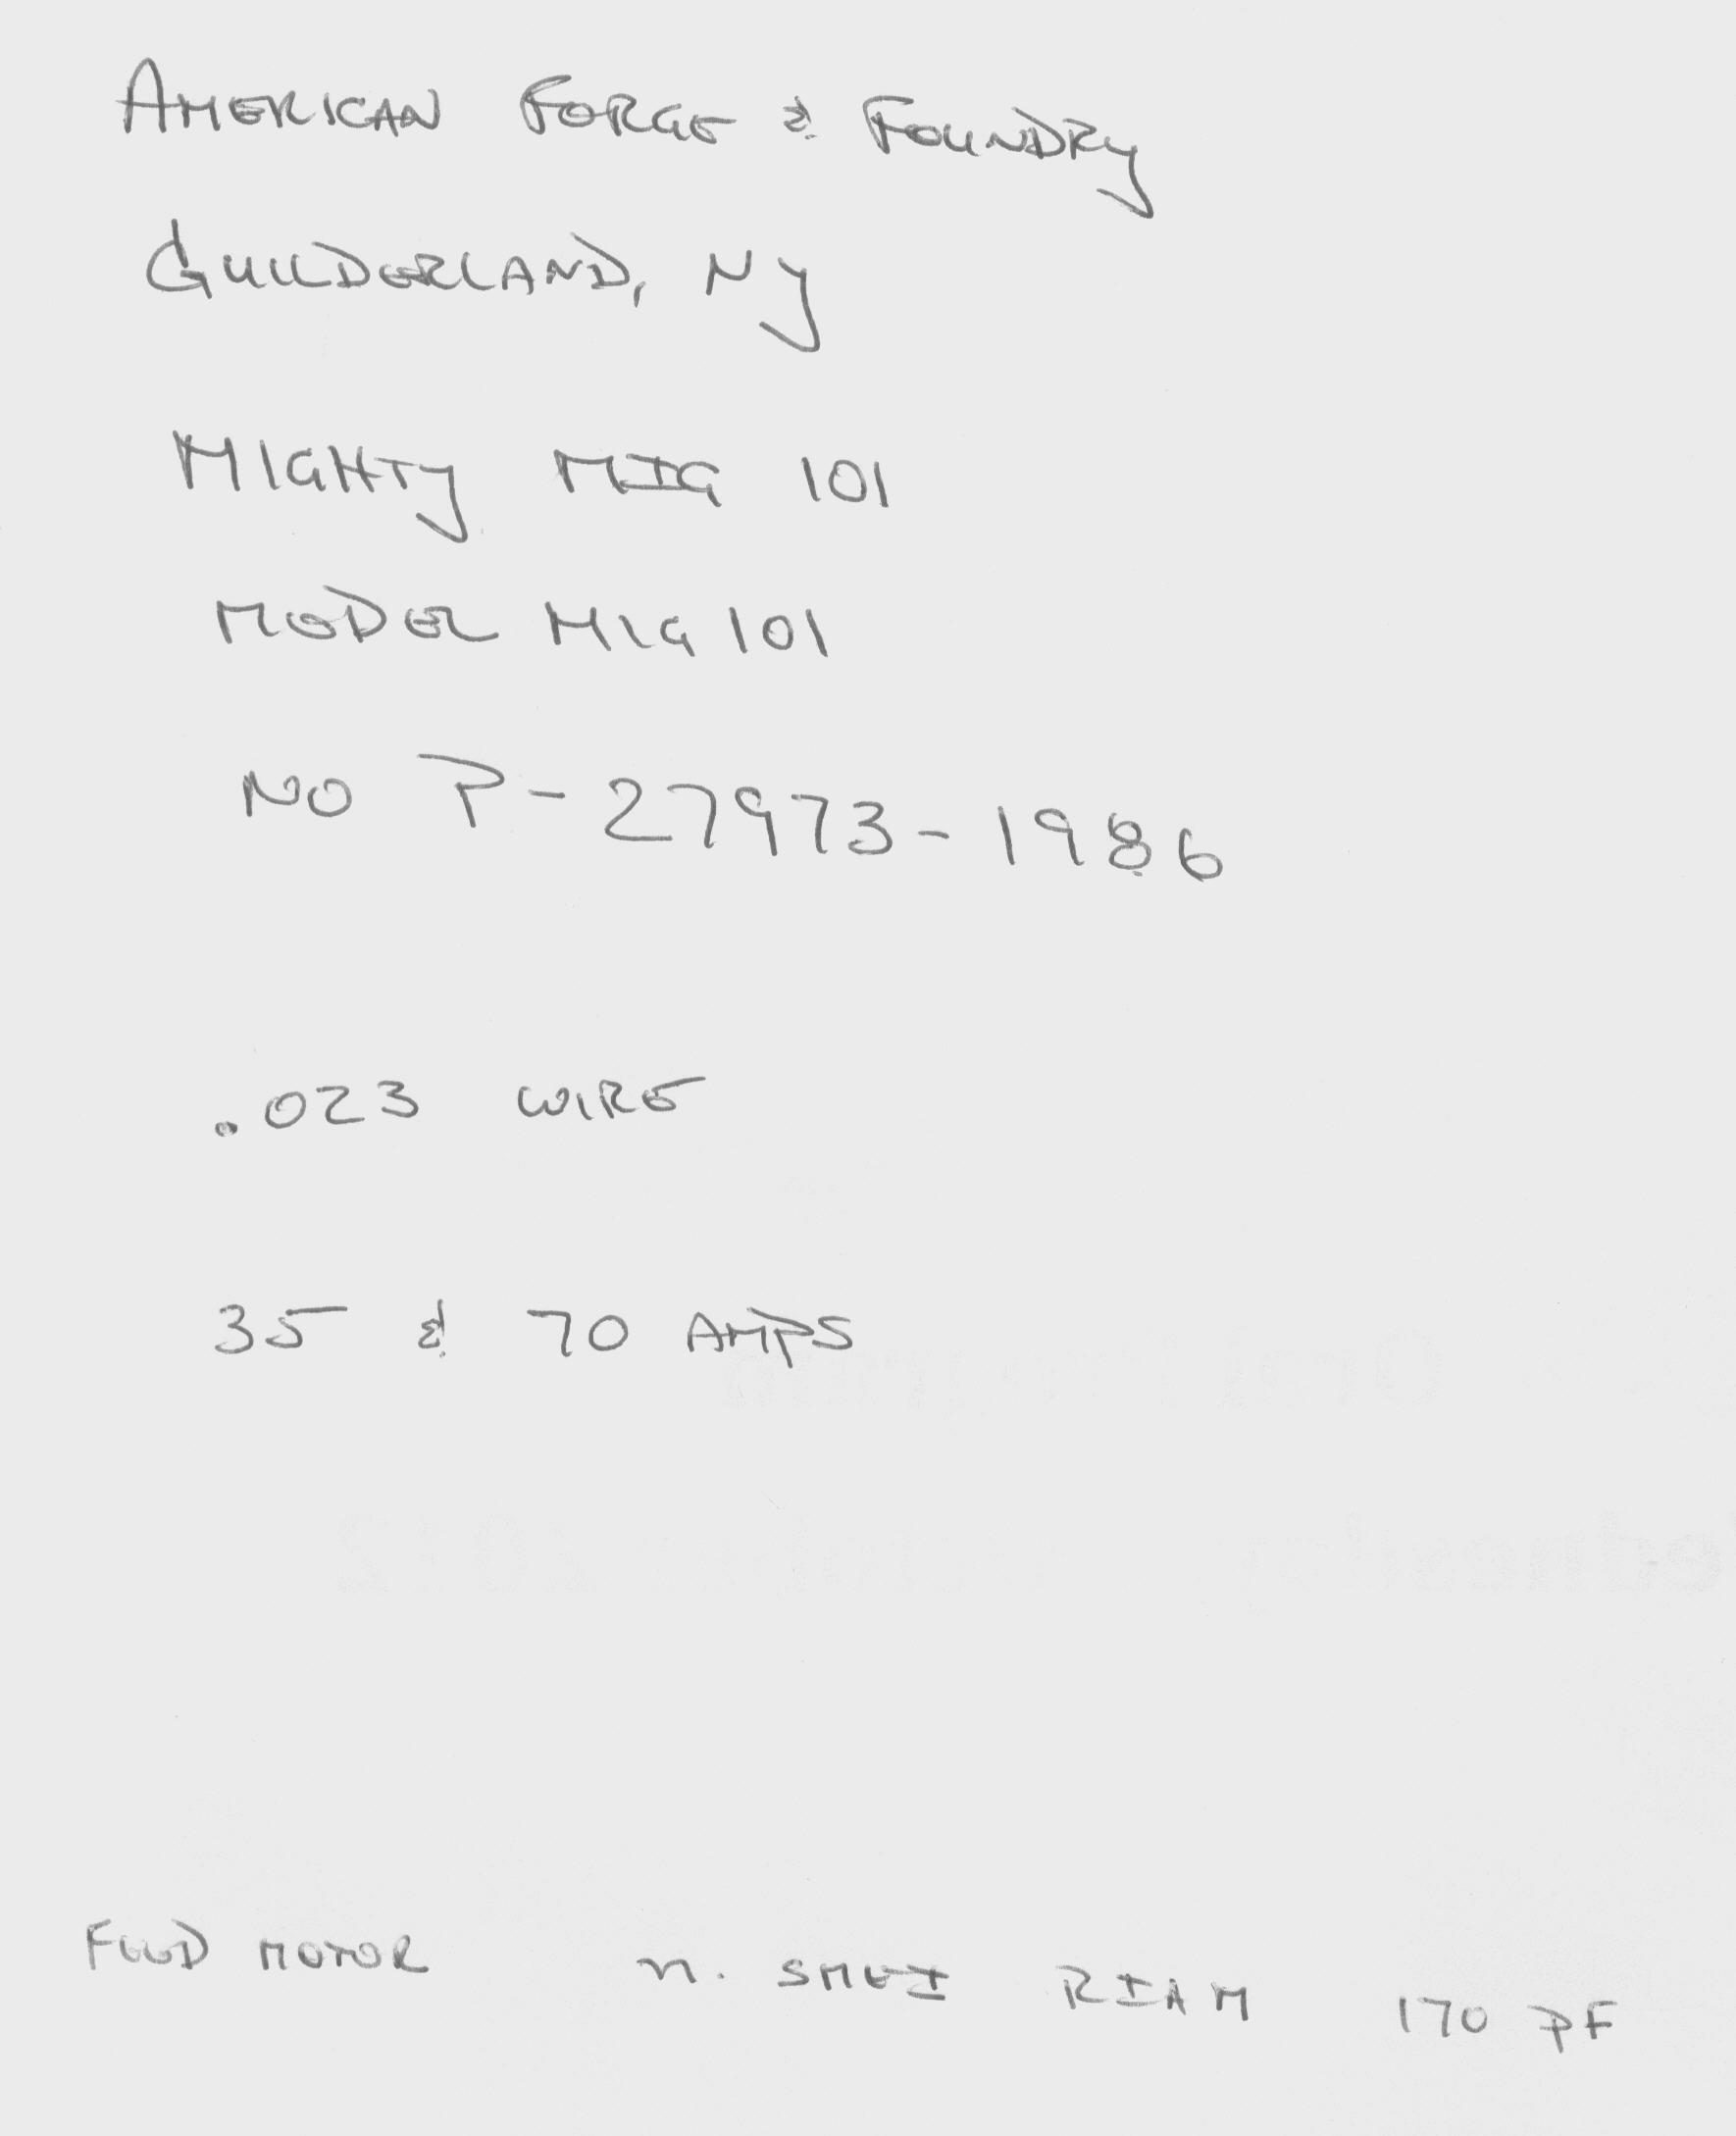 AMERICAN FORGE & FOUNDRY
GUILDERLAND, NY
MIGHTY MIG 101
MODEL MIG 101
NO P-27973-1986
.023 WIRE
35 & 70 AMPS
FEED MOTOR M. SMEI RIAM 170 PF